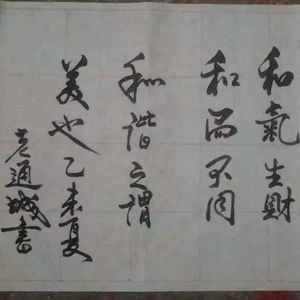 和氣生財
和而不同
和諧之謂
美也乙未夏
老通城書